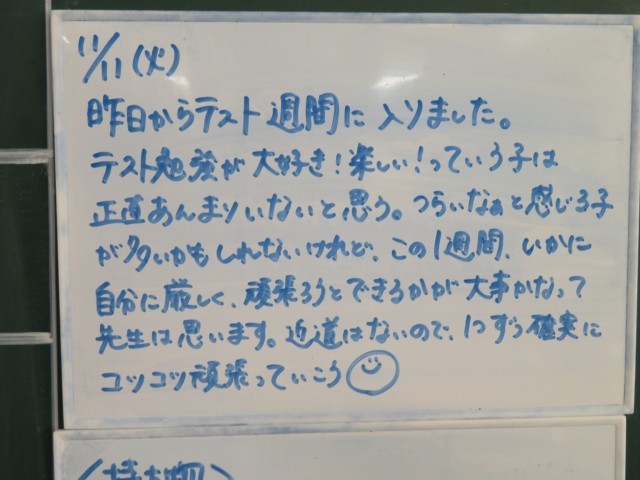 11/11(火)
昨日からテスト週間に入りました。
テスト勉強が大好き!楽しい!っていう子は
正直あんまりいないと思う。つらいなぁと感じる子
が多いかもしれないけれど、この1週間、いかに
自分に厳しく、頑張ろうとできるかが大事かなって
先生は思います。近道はないので、1つずつ確実に
コツコツ頑張っていこう
(持ち物)